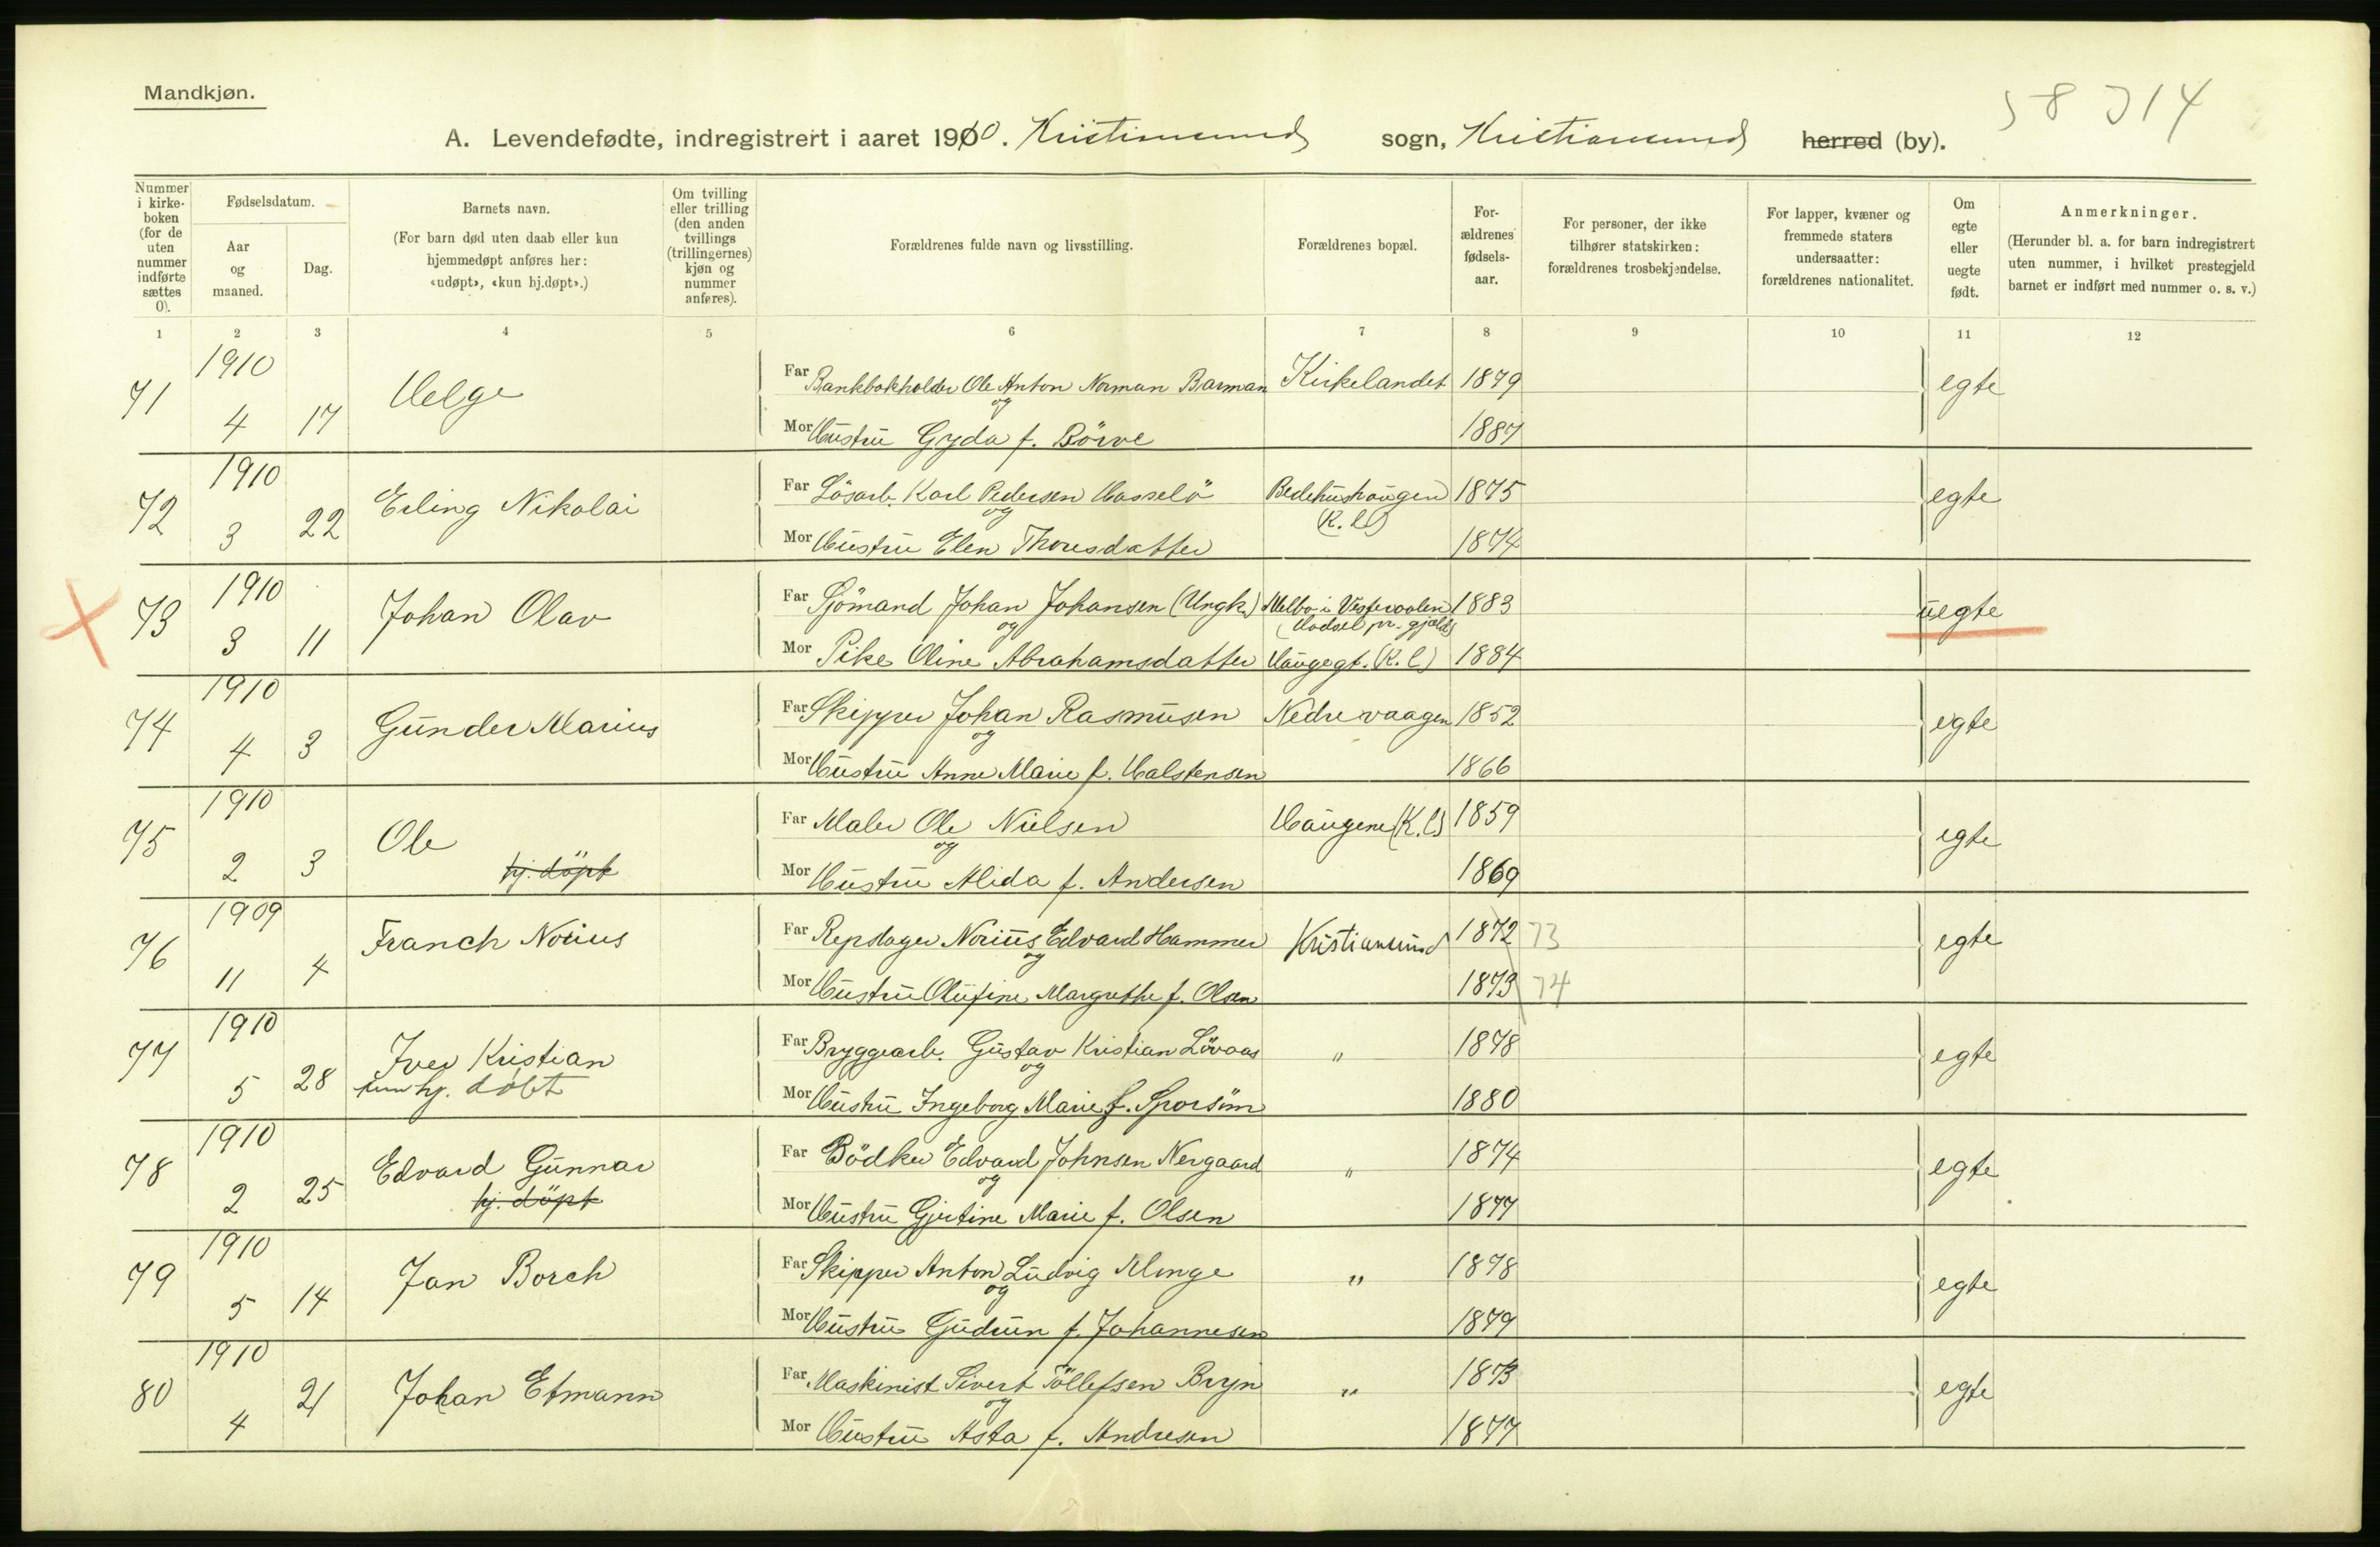 Mandkjøn.
A. Levendefødte, indregistrert i aaret 1910. Kristiansund sogn, Kristiansund herred (by).
Nummer i kirkeboken (for de uten nummer indførte sættes 0).
Fødselsdatum.
Aar og maaned.
Dag.
Barnets navn.
(For barn død uten daab eller kun hjemmedøpt anføres her: «udøpt», «kun hj.døpt».)
Om tvilling eller trilling (den anden tvillings (trillingernes) kjøn og nummer anføres).
Forældrenes fulde navn og livsstilling.
Forældrenes bopæl.
Forældrenes fødselsaar.
For personer, der ikke tilhører statskirken: forældrenes trosbekjendelse.
For lapper, kvæner og fremmede staters undersaatter: forældrenes nationalitet.
Om egte eller uegte født.
Anmerkninger.
(Herunder bl. a. for barn indregistrert uten nummer, i hvilket prestegjeld barnet er indført med nummer o. s. v.)
1 2 3 4 5 6 7 8 9 10 11 12
71 1910 4 17 Helge
Far Bankbokholder Ole Anton Norman Barman Kirkelandet 1879 egte
og
Mor Hustru Gyda f. Börve 1887
72 1910 3 22 Erling Nikolai
Far Lösarb. Karl Pedersen Hasselö Bedehushaugen 1875 egte
og (K. l)
Mor Hustru Elen Thoresdatter 1874
73 1910 3 11 Johan Olav
Far Sjömand Johan Johansen (Ungk.) Melbo i Vesteraalen 1883 uegte
og (Hadsel pr. gjæld)
Mor Pike Oline Abrahamsdatter Haugegt. (K. l) 1884
74 1910 4 3 Gunder Marius
Far Skipper Johan Rasmusen Nedrevaagen 1852 egte
og
Mor Hustru Anne Marie f. Halstensen 1866
75 1910 2 3 Ole
hj. döpt
Far Maler Ole Nielsen Haugene (K. l) 1859 egte
og
Mor Hustru Alida f. Andersen 1869
76 1909 11 4 Franch Norius
Far Repslager Norius Edvard Hammer Kristiansund 1872 73 egte
og
Mor Hustru Olufine Margrethe f. Olsen 1873 74
77 1910 5 28 Iver Kristian
kun hj. döbt
Far Bryggearb. Gustav Kristian Lövaas " 1878 egte
og
Mor Hustru Ingeborg Marie f. Sporsöm 1880
78 1910 2 25 Edvard Gunnar
hj. döpt
Far Bödker Edvard Johnsen Nergaard " 1874 egte
og
Mor Hustru Gjertine Marie f. Olsen 1877
79 1910 5 14 Jan Borch
Far Skipper Anton Ludvig Klinge " 1878 egte
og
Mor Hustru Gudrun f. Johannesen 1879
80 1910 4 21 Johan Etmann
Far Maskinist Sivert Töllefsen Bryn " 1873 egte
og
Mor Hustru Asta f. Andresen 1877